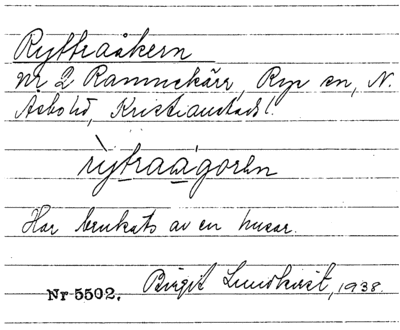 Ryttraåkern
nr 2 Ramnekärr, Ryp sn, N.
Åsbo hd, Kristianstads l.
rỳtraågorėn
Har brukats av en husar.
Nr 5502. Birgit Lundkvist, 1938.